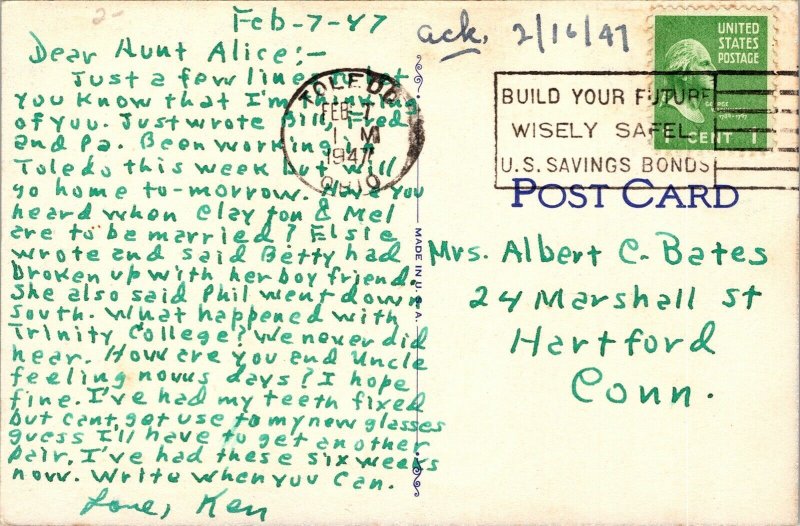 2-
Feb-7-47
Dear Aunt Alice:-
Just a few lines to let
you know that I'm thinking
of you. Just wrote Bill, Fred
and Pa. Been working in
Toledo this week but will
go home to-morrow. Have you
heard when Clayton & Mel
are to be married? Elsie
wrote and said Betty had
broken up with her boy friend.
She also said Phil went down
South. What happened with
Trinity College? We never did
hear. How are you and Uncle
feeling novus days? I hope
fine. I've had my teeth fixed
but cant get use to my new glasses
guess I'll have to get another
pair. I've had these six weeks
now. Write when you can.
Love, Ken
ack. 2/16/47
TOLEDO
FEB 7
1 M
1947
OHIO
BUILD YOUR FUTURE
WISELY SAFEL
U.S. SAVINGS BONDS
UNITED
STATES
POSTAGE
GEORGE
1 CENT 1
POST CARD
MADE IN U.S.A.
Mrs. Albert C. Bates
24 Marshall St
Hartford
Conn.